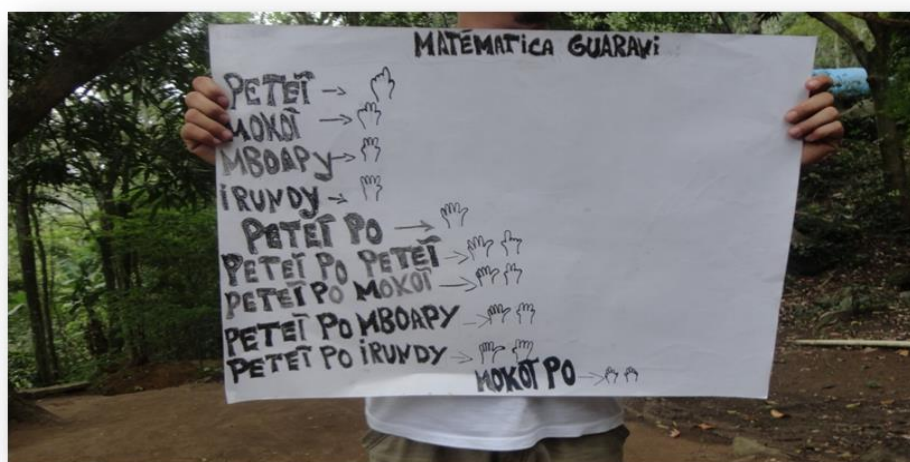 MATÉMATICA GUARANI
PETEĨ →
MOKOĨ →
MBOAPY →
IRUNDY →
PETEĨ PO →
PETEĨ PO PETEĨ →
PETEĨ PO MOKOĨ →
PETEĨ PO MBOAPY →
PETEĨ PO IRUNDY →
MOKOĨ PO →